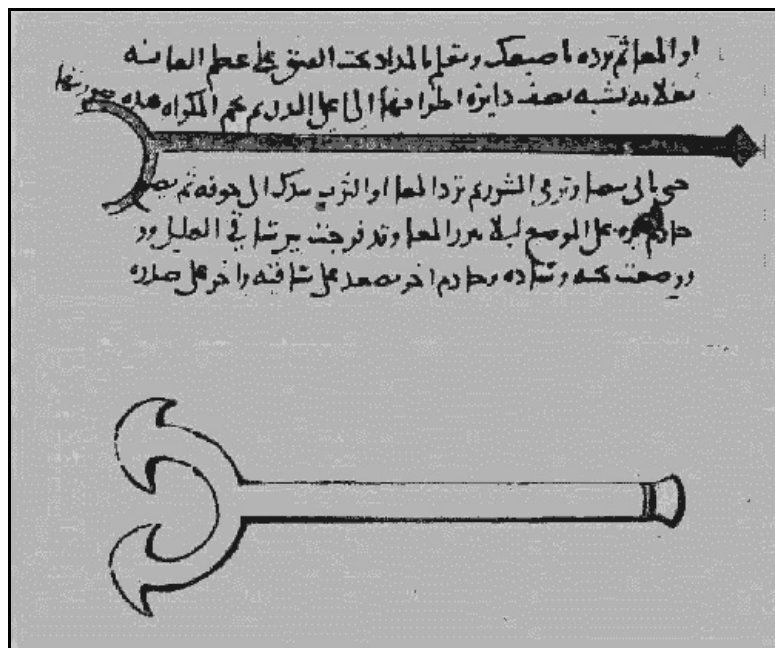 او المعا ثم ترده باصبعك وتعلم بالمداد تحت الفتق على عظم العانه
بعلامه تشبه نصف دايرة اطرافها الى اعلى البدن ثم تحم المكواه هذه صورتها
حتى ياتى بيضا وترمى الشرر ثم ترد المعا او الثرب الى جوفه ثم يضع
خادم يده على الموضع ليلا يبرز المعا وقد فرجت بين ساقي العليل وو
ووضعت تحته وساده وخادم اخر يقعد على ساقيه واخر على صدره